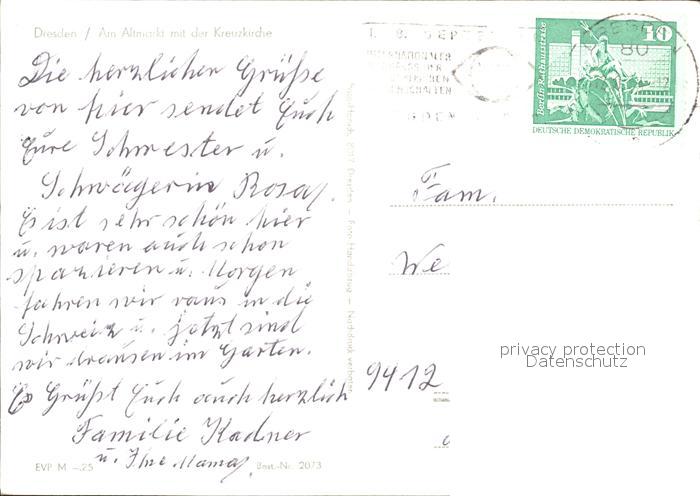 Dresden / Am Altmarkt mit der Kreuzkirche
Die herzlichen Grüsse
von hier sendet Euch
Eure Schwester u.
Schwägerin Rosa.
Es ist sehr schön hier
u. waren auch schon
spazieren u. Morgen
fahren wir raus in die
Schweiz u. jetzt sind
wir drausen im Garten.
Es Grüßt Euch auch herzlich
Familie Kadner
u. Ihre Mama
EVP M –.25
Best.-Nr. 2073
80
10
Berlin, Rathausstraße
DEUTSCHE DEMOKRATISCHE REPUBLIK
Fam.
We
9412
privacy protection
Datenschutz